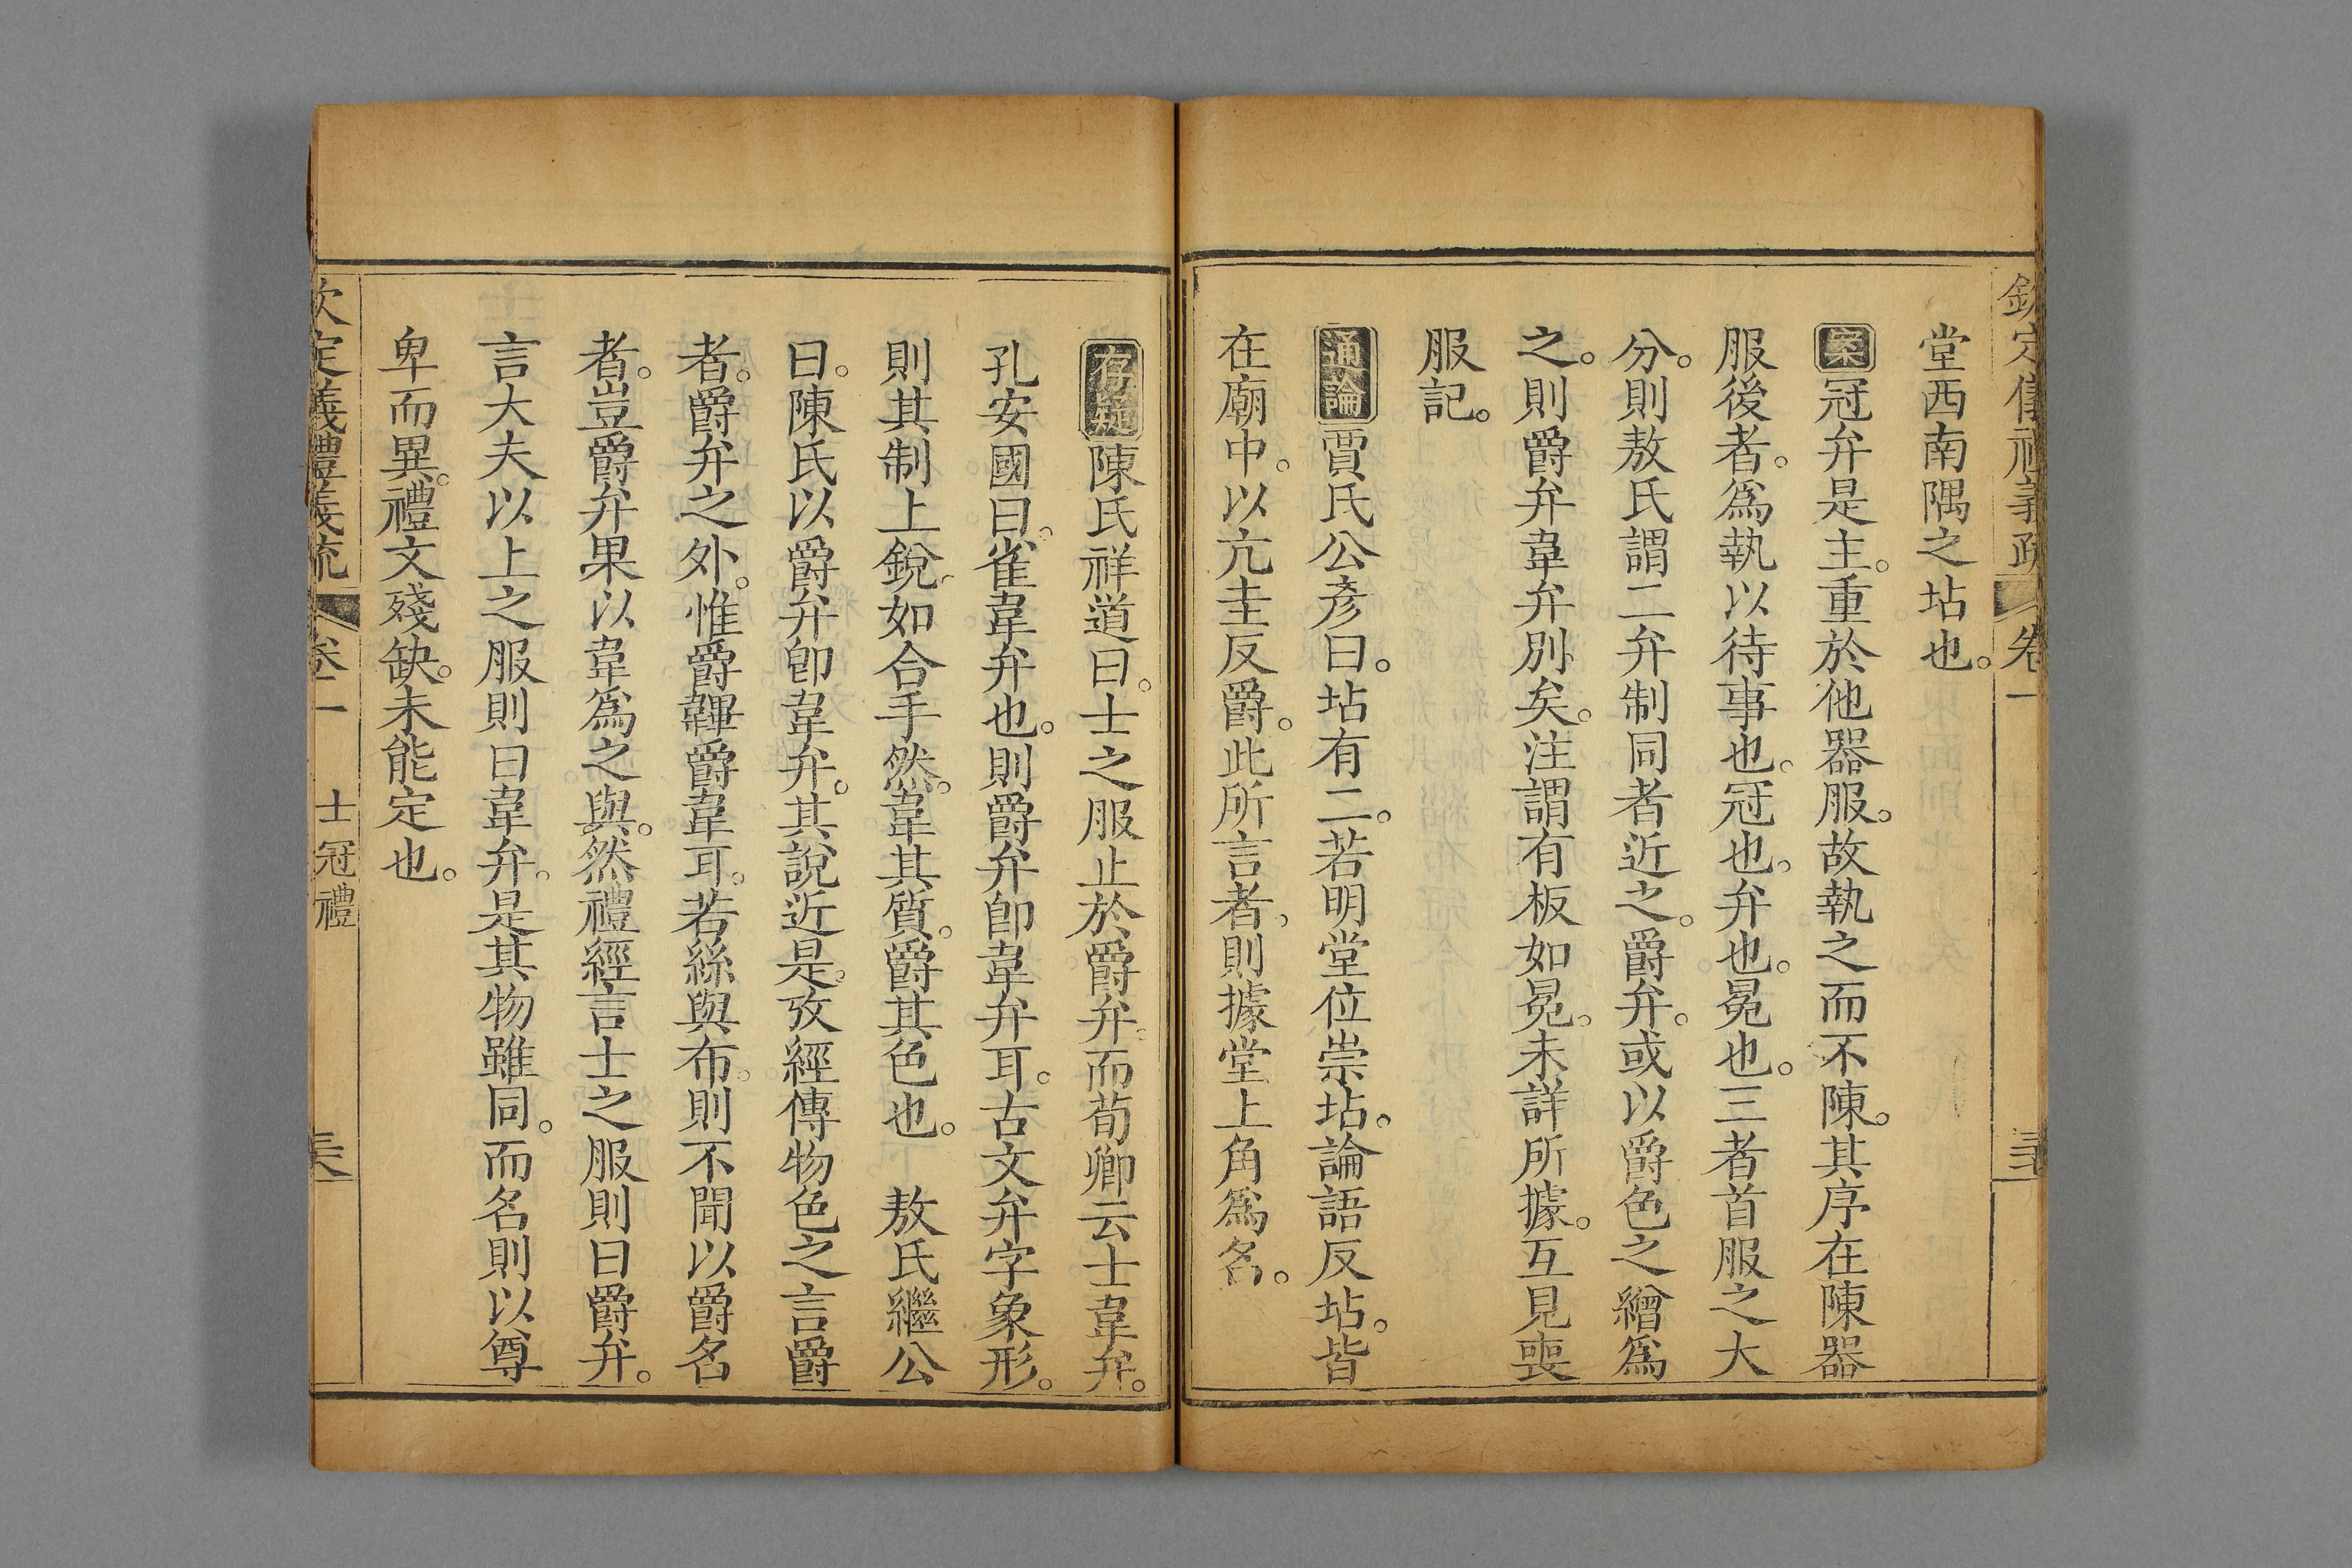 欽定儀禮義疏 卷一
堂西南隅之坫也。
案冠弁是主。重於他器服。故執之而不陳。其序在陳器
服後者。爲執以待事也。冠也。弁也。冕也。三者首服之大
分。則敖氏謂二弁制同者近之。爵弁。或以爵色之繒爲
之。則爵弁韋弁別矣。注謂有板如冕。未詳所據。互見喪
服記。
通論賈氏公彥曰。坫有二。若明堂位崇坫。論語反坫。皆
在廟中。以亢圭反爵。此所言者、則據堂上角爲名。
存疑陳氏祥道曰。士之服止於爵弁。而荀卿云士韋弁。
孔安國曰。雀韋弁也。則爵弁卽韋弁耳。古文弁字象形。
則其制上銳、如合手然。韋其質。爵其色也。 敖氏繼公
曰。陳氏以爵弁卽韋弁。其說近是。攷經傳物色之言爵
者。爵弁之外。惟爵韠爵韋耳。若絲與布。則不聞以爵名
者。豈爵弁果以韋爲之與。然禮經言士之服則曰爵弁。
言大夫以上之服則曰韋弁。是其物雖同。而名則以尊
卑而異。禮文殘缺。未能定也。
欽定義禮義疏 卷一 士冠禮